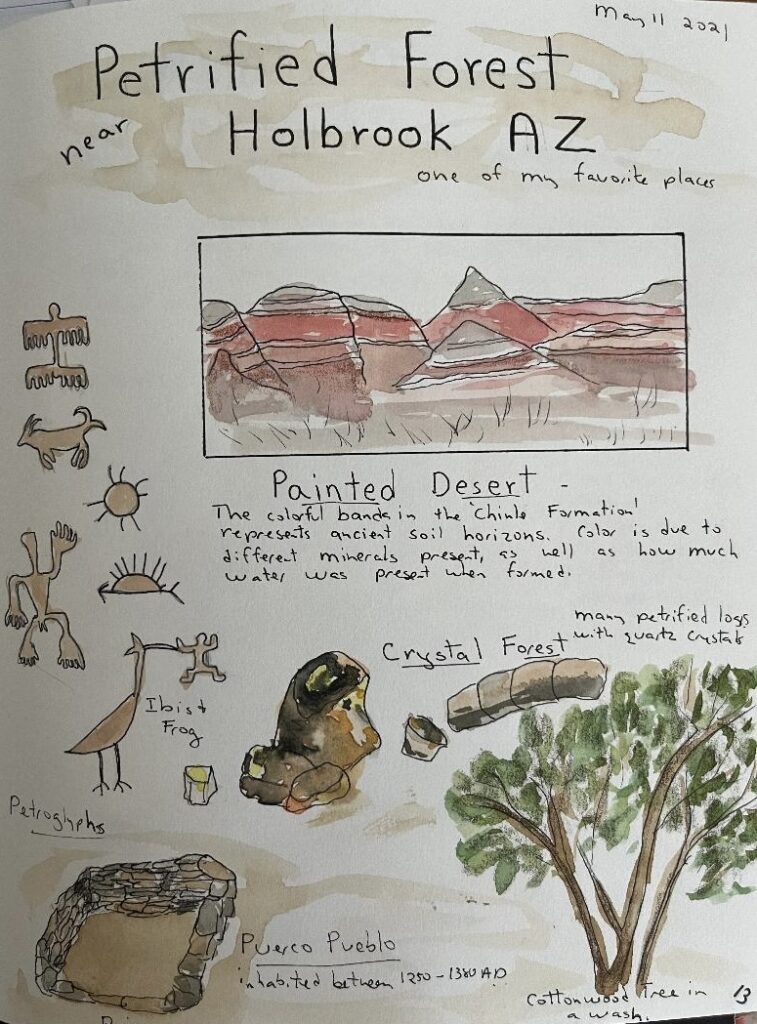 May 11 2021
Petrified Forest
near Holbrook AZ
one of my favorite places
Painted Desert -
The colorful bands in the 'Chinle Formation'
represents ancient soil horizons. Color is due to
different minerals present, as well as how much
water was present when formed.
many petrified logs
with quartz crystals
Crystal Forest
Ibis &
Frog
Petroglyphs
Puerco Pueblo
inhabited between 1250-1380 AD
Cottonwood Tree in
a wash.
13